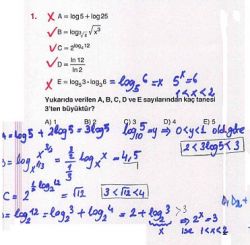 1. A = log5 + log25
B = log_{³√x} √x³
C = 2^{log₄12}
D = ln12 / ln2
E = log₅3 · log₃6 = log₅6 = x 5^x = 6
1 < x < 2
Yukarıda verilen A, B, C, D ve E sayılarından kaç tanesi
3'ten büyüktür?
A) 1 B) 2 C) 3 D) 4 E) 5
A = log5 + 2log5 = 3log5 log₁₀5 = y ⇒ 0 < y < 1 olduğundan
2 < 3log5 < 3
B = log_{x^{1/3}} x^{3/2} = log_x x = 4,5
C = 2^{½ log₂12} = √12 3 < √12 < 4
D = log₂12 = log₂3 + log₂4 = 2 + log₂3 > 3
x ⇒ 2^x = 3
ise 1 < x < 2